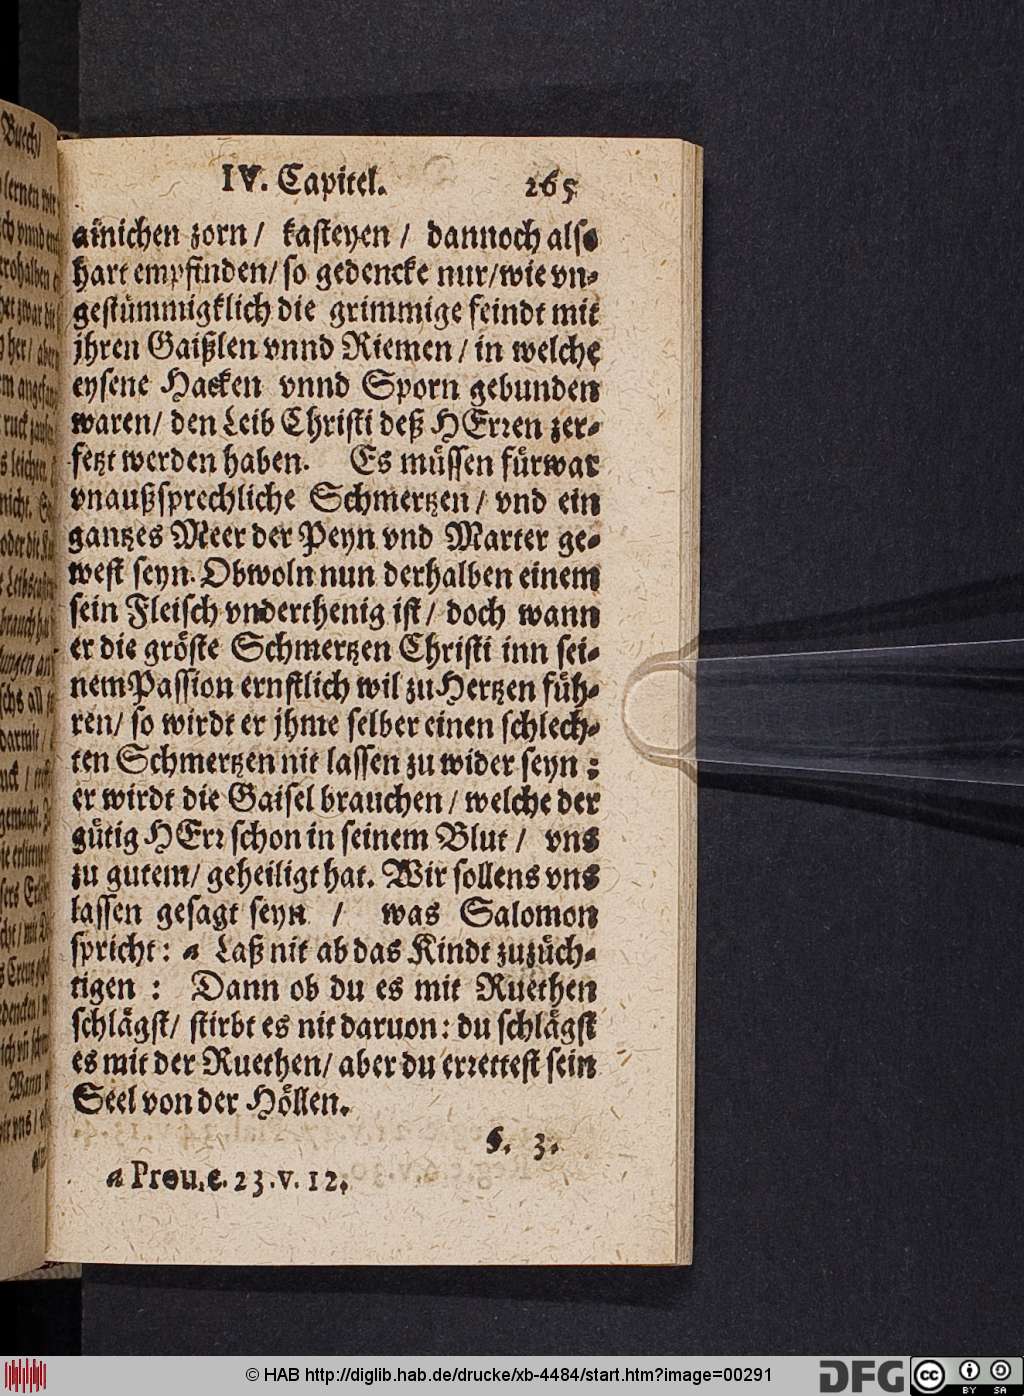 IV. Capitel. 265
ainichen zorn / kasteyen / dannoch also
hart empfinden / so gedencke nur / wie vn-
gestümmigklich die grimmige feindt mit
jhren Gaißlen vnnd Riemen / in welche
eysene Hacken vnnd Sporn gebunden
waren / den Leib Christi deß HErren zer-
fetzt werden haben. Es müssen fürwar
vnaußsprechliche Schmertzen / vnd ein
gantzes Meer der Peyn vnd Marter ge-
west seyn. Obwoln nun derhalben einem
sein Fleisch vnderthenig ist / doch wann
er die gröste Schmertzen Christi inn sei-
nem Passion ernstlich wil zu Hertzen füh-
ren / so wirdt er jhme selber einen schlech-
ten Schmertzen nit lassen zu wider seyn :
er wirdt die Gaisel brauchen / welche der
gütig HErr schon in seinem Blut / vns
zu gutem / geheiligt hat. Wir sollens vns
lassen gesagt seyn / was Salomon
spricht : a Laß nit ab das Kindt zuzüch-
tigen : Dann ob du es mit Ruethen
schlägst / stirbt es nit daruon : du schlägst
es mit der Ruethen / aber du errettest sein
Seel von der Höllen.
§. 3.
a Prou. c. 23. v. 12.
© HAB http://diglib.hab.de/drucke/xb-4484/start.htm?image=00291
DFG
cc
BY SA